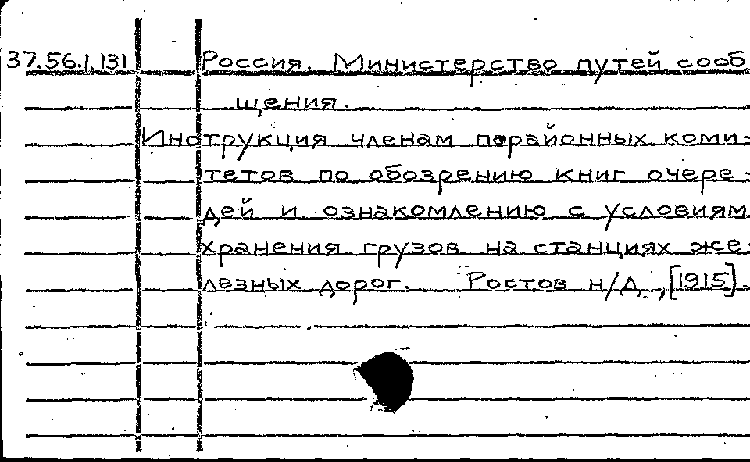 37.56.1.131 Россия. Министерство путей сооб
щения.
Инструкция членам порайонных коми-
тетов по обозрению книг очере-
дей и ознакомлению с условиям
хранения грузов на станциях же-
лезных дорог. Ростов н/Д, [1915].